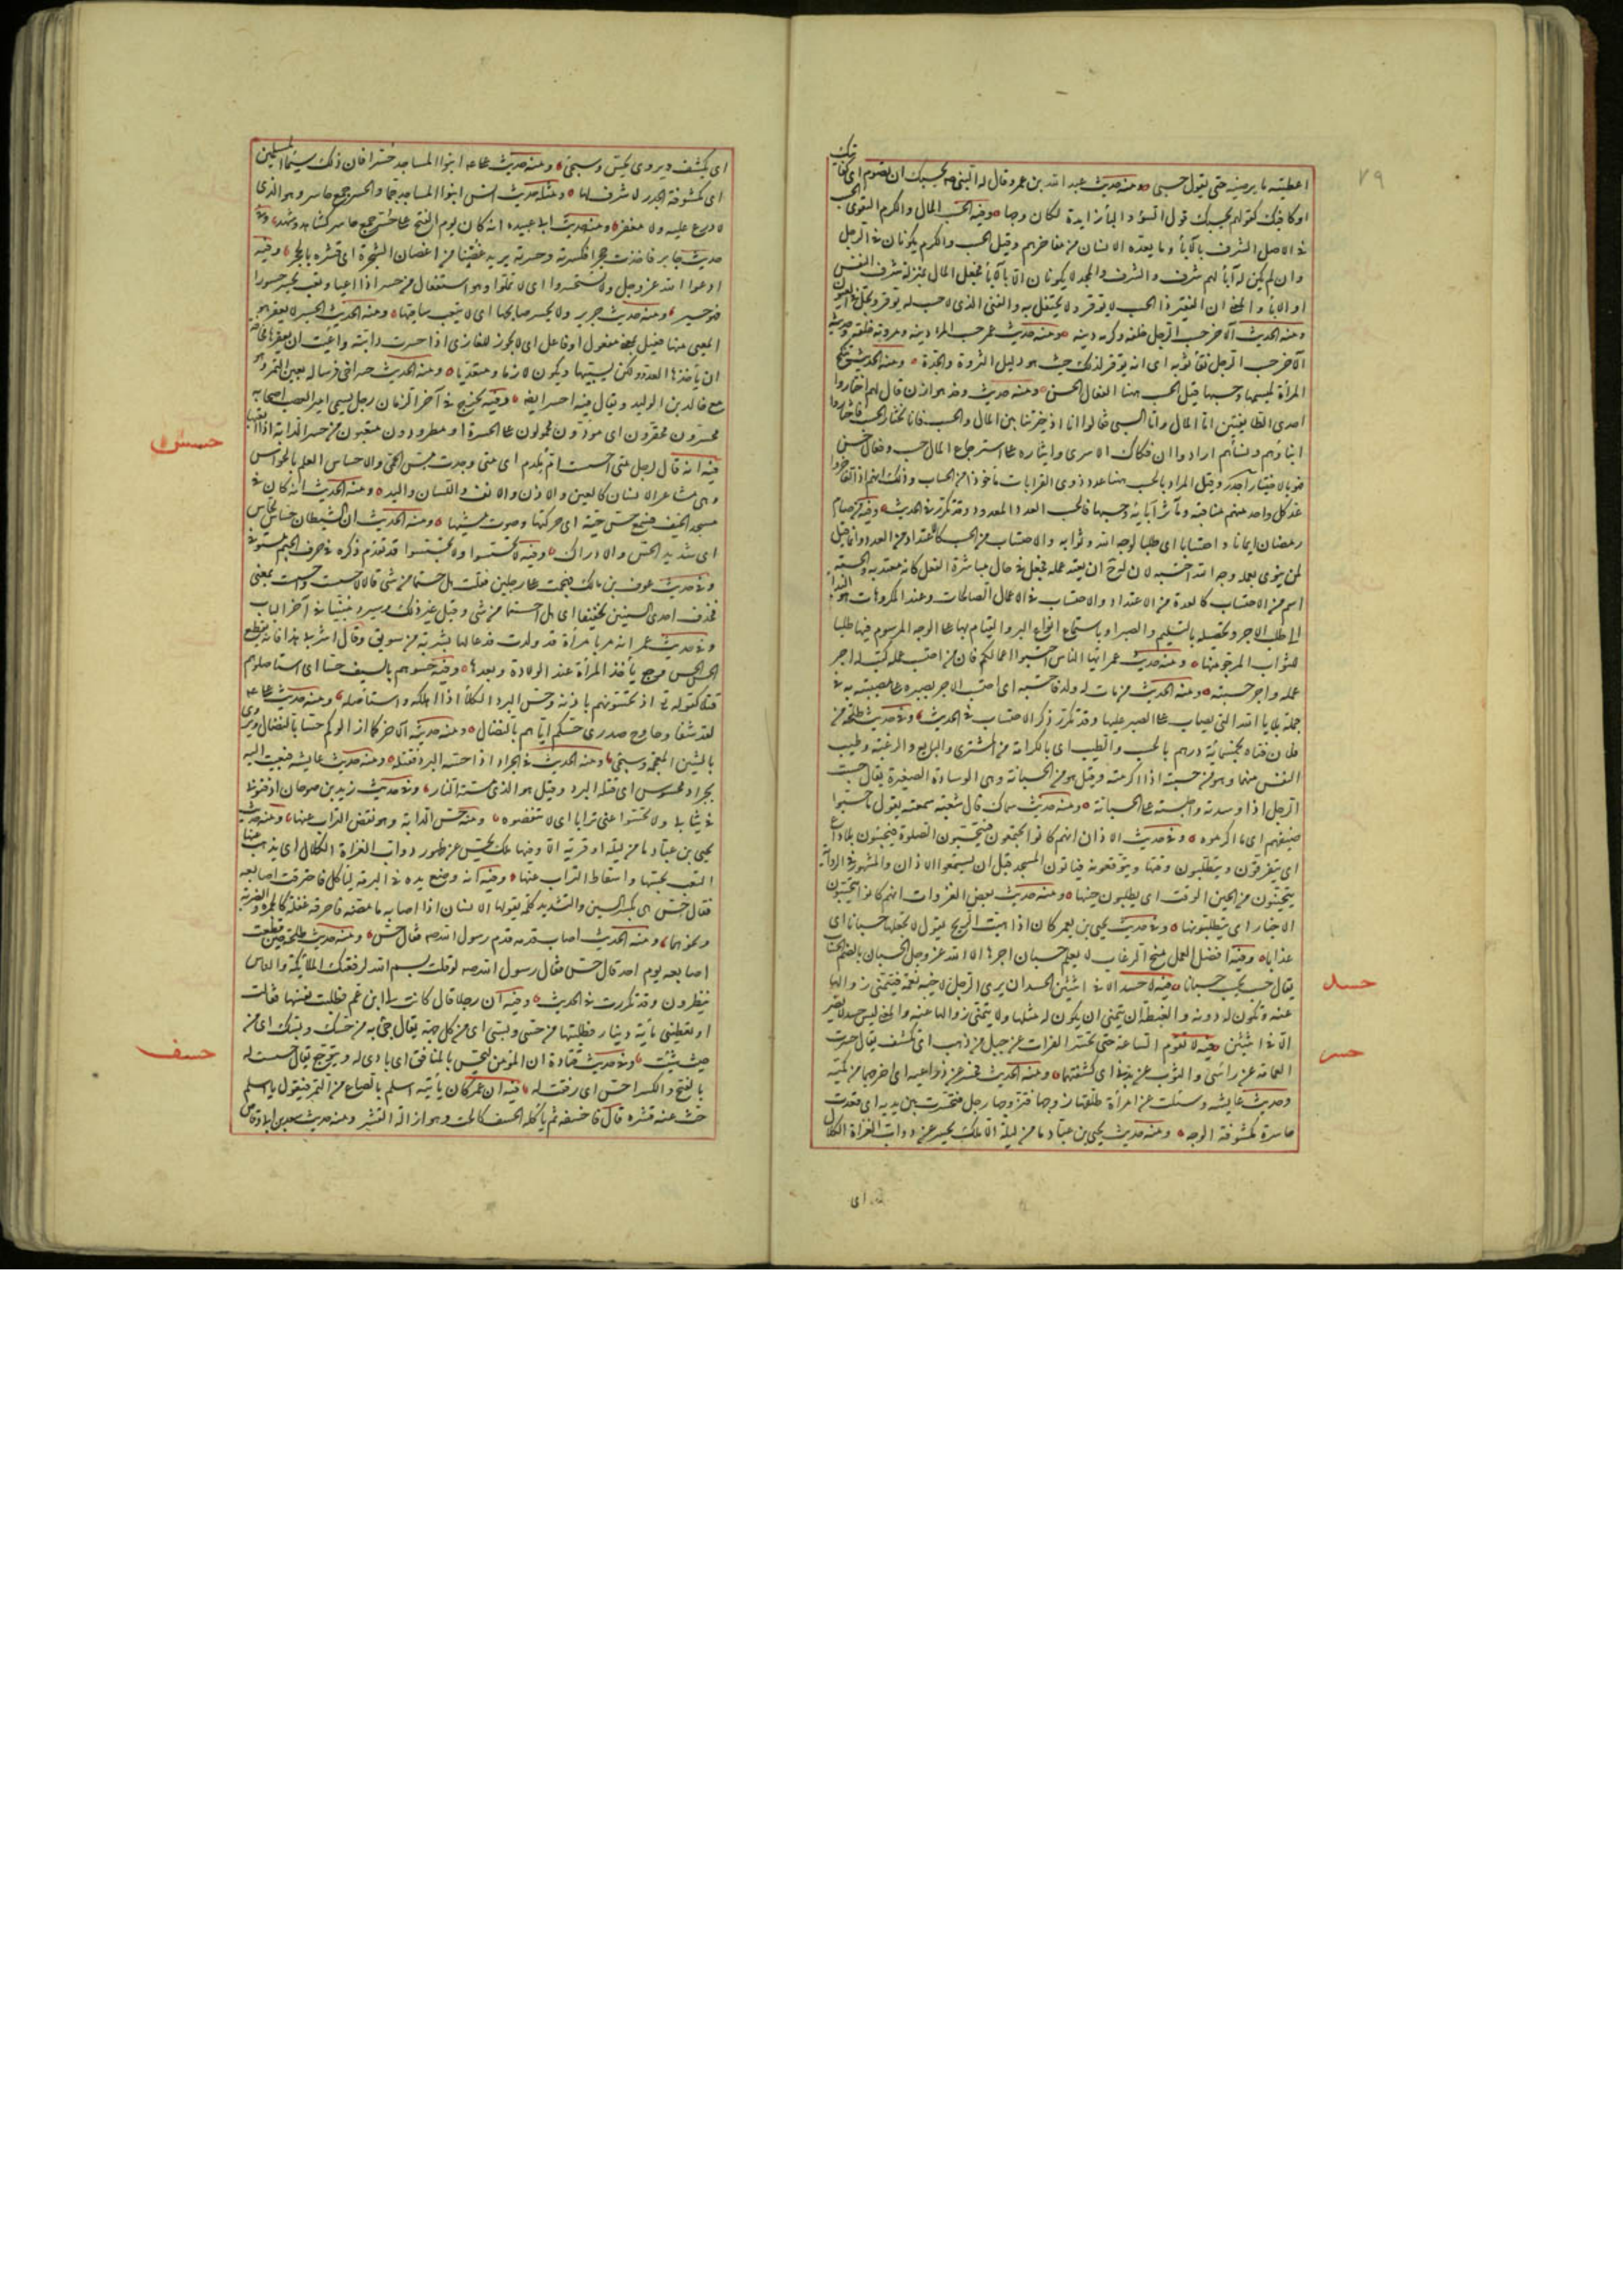 ٧٩
اعطيته ما يرضيه حتى يقول حسبى ومنه حديث عبد الله بن عمرو قال له النبى صم يحسبك ان تصوم اى كفايتك
او كافيك كقولهم بحسبك قول السوء والباء زايدة لكان وجها وفيه الحسب المال والكرم التقوى الحسب
فى الاصل الشرف بالآباء وما يعده الانسان من مفاخرهم وقيل الحسب والكرم يكونان فى الرجل
وان لم يكن له آباء لهم شرف والشرف والمجد لا يكونان الا بالآباء فجعل المال بمنزلة شرف النفس
او الآباء والمعنى ان الفقير ذا الحسب لا يوقر ولا يحتفل به والغنى الذى لا حسب له يوقر ويجل فى العيون
ومنه الحديث الآخر حسب الرجل خلقه وكرمه دينه ومنه حديث عمر حسب المرء دينه ومروته خلقه وحديثه
الآخر حسب الرجل نقاء ثوبيه اى انه يوقر لذلك حيث هو دليل الثروة والجدة ومنه الحديث تنكح
المرأة لميسمها وحسبها قيل الحسب ههنا الفعال الحسن ومنه حديث وفد هوازن قال لهم اختاروا
احدى الطائفتين اما المال واما السبى فقالوا اما اذ خيرتنا بين المال والحسب فانا نختار الحسب فاختاروا
ابناءهم ونساءهم ارادوا ان فكاك الاسرى وايثاره على استرجاع المال حسب وفعال حسن
فهو بالاختيار اجدر وقيل المراد بالحسب ههنا عدد ذوى القرابات مأخوذا من الحساب وذلك انهم اذا تفاخروا
عد كل واحد منهم مناقبه ومآثر آبائه وحسبها فالحسب العد والمعدود وقد تكرر فى الحديث وفيه من صام
رمضان ايمانا واحتسابا اى طلبا لوجه الله وثوابه والاحتساب من الحسب كالاعتداد من العد وانما قيل
لمن ينوى بعمله وجه الله احتسبه لان له ح ان يعتد عمله فجعل فى حال مباشرة الفعل كانه معتد به والحسبة
اسم من الاحتساب كالعدة من الاعتداد والاحتساب فى الاعمال الصالحات وعند المكروهات هو البدار
الى طلب الاجر وتحصيله بالتسليم والصبر او باستعمال انواع البر والقيام بها على الوجه المرسوم فيها طلبا
للثواب المرجو منها ومنه حديث عمر ايها الناس احتسبوا اعمالكم فان من احتسب عمله كتب له اجر
عمله واجر حسبته ومنه الحديث من مات له ولد فاحتسبه اى احتسب الاجر بصبره على مصيبته به فى
جملة بلايا الله التى يصاب على الصبر عليها وقد تكرر ذكر الاحتساب فى الحديث وفى حديث طلحة من
فلان فتاه بخمسمائة درهم بالحسب والطيب اى بالكرامة من المشترى والبايع والرغبة وطيب
النفس منهما وهو من حسبته اذا اكرمته وقيل هو من الحسبانة وهى الوسادة الصغيرة يقال حسبت
الرجل اذا وسدته واجلسته على الحسبانة ومنه حديث سماك قال شعبة سمعته يقول ما حسبوا
ضيفهم اى ما اكرموه وفى حديث الاذان انهم كانوا يجتمعون فيتحسبون الصلوة فيجيئون بلا داع
اى يتعرفون ويتطلبون وقتها ويتوقعونه فياتون المسجد قبل ان يسمعوا الاذان والمشهور فى الرواية
يتحينون من الحين الوقت اى يطلبون حينها ومنه حديث بعض الغزوات انهم كانوا يتحسبون
الاخبار اى يتطلبونها وفى حديث يحيى بن يعمر كان اذا هبت الريح يقول لا تجعلها حسبانا اى
عذابا وفيه افضل العمل منح الرغاب لا يعلم حسبان اجرها الا الله عز وجل الحسبان بالضم الحساب
يقال حسب يحسب حسبانا فيه لا حسد الا فى اثنتين الحسد ان يرى الرجل لاخيه نعمة فيتمنى زوالها
عنه وتكون له دونه والغبطة ان يتمنى ان يكون له مثلها ولا يتمنى زوالها عنه والمعنى ليس حسد لا يضر
الا فى اثنتين فيه لا تقوم الساعة حتى يحسر الفرات عن جبل من ذهب اى يكشف يقال حسرت
العمامة عن راسى والثوب عن بدنى اى كشفتهما ومنه الحديث فحسر عن ذراعيه اى اخرجهما من كميه
وحديث عايشه وسئلت عن امرأة طلقها زوجها فتزوجها رجل فتحسرت بين يديه اى قعدت
حاسرة مكشوفة الوجه ومنه حديث يحيى بن عباد ما من ليلة الا ملك يحسر عن دواب الغزاة الكلال
حسد
حسر
اى
اى يكشف ويروى يحس وسيجئ ومنه حديث على ابنوا المساجد حسرا فان ذلك سيما المسلمين
اى مكشوفة الجدر لا شرف لها ومثله حديث انس ابنوا المساجد جما والحسر جمع حاسر وهو الذى
لا درع عليه ولا مغفر ومنه حديث ابى عبيده انه كان يوم الفتح على الحسر جمع حاسر كشاهد وشهد وفى
حديث جابر فاخذت حجرا فكسرته وحسرته يريد غصنا من اغصان الشجرة اى قشره بالحجر وفيه
ادعوا الله عز وجل ولا تستحسروا اى لا تملوا وهو استفعال من حسر اذا اعيا وتعب يحسر حسورا
فهو حسير ومنه حديث جرير ولا يحسر صابحها اى لا يتعب سايقها ومنه الحديث الحسير لا يعقر هو
المعيى منها فعيل بمعنى مفعول او فاعل اى لا يجوز للغازى اذا حسرت دابته واعيت ان يعقرها مخافة
ان يأخذها العدو ولكن يسيبها ويكون لازما ومتعديا ومنه الحديث حسر اخى فرسا له بعين التمر وهو
مع خالد بن الوليد ويقال فيه احسر ايضا وفيه يخرج فى آخر الزمان رجل يسمى امير العصب اصحابه
محسرون محقرون اى موذون محمولون على الحسرة او مطرودون متعبون من حسر الدابة اذا اتعبها
فيه انه قال لرجل متى احسست ام ملدم اى متى وجدت مس الحمى والاحساس العلم بالحواس
وهى مشاعر الانسان كالعين والاذن والانف واللسان واليد ومنه الحديث انه كان فى
مسجد الخيف فسمع حس حية اى حركتها وصوت مشيها ومنه الحديث ان الشيطان حساس لحاس
اى شديد الحس والادراك وفيه لا تحسسوا ولا تجسسوا قد تقدم ذكره فى حرف الجيم مستوفى
وفى حديث عوف بن مالك فهجمت على رجلين فقلت هل حستما من شئ قالا لا حست واحسست بمعنى
فحذف احدى السينين تخفيفا اى هل احسستما من شئ وقيل غير ذلك وسيرد مبينا فى آخر الباب
وفى حديث عمر انه مر بامرأة قد ولدت فدعا لها بشربة من سويق وقال اشربى هذا فانه يقطع
الحس الحس وجع يأخذ المرأة عند الولادة وبعدها وفيه حسوهم بالسيف حسا اى استأصلوهم
قتلا كقوله تع اذ تحسونهم باذنه وحس البرد الكلأ اذا اهلكه واستأصله ومنه حديث على
لقد شفا وحاوح صدرى حسكم اياهم بالنضال ومنه حديثه الآخر كما ازالوكم حسا بالنضال ويروى
بالشين المعجمة وسيجئ ومنه الحديث فى الجراد اذا حسه البرد فقتله ومنه حديث عايشه فبعثت اليه
بجراد محسوس اى قتله البرد وقيل هو الذى مسته النار وفى حديث زيد بن صوحان ادفنونى
فى ثيابى ولا تحسوا عنى ترابا اى لا تنفضوه ومنه حس الدابة وهو نفض التراب عنها ومنه حديث
يحيى بن عباد ما من ليلة او قرية الا وفيها ملك يحس عن ظهور دواب الغزاة الكلال اى يذهب عنها
التعب بحسها واسقاط التراب عنها وفيه انه وضع يده فى البرمة ليأكل فاحترقت اصابعه
فقال حس هى بكسر السين والتشديد كلمة يقولها الانسان اذا اصابه ما مضه فاحرقه غفلة كالجمرة والضربة
ونحوهما ومنه الحديث اصاب قدمه قدم رسول الله صم فقال حس ومنه حديث طلحة حين قطعت
اصابعه يوم احد قال حس فقال رسول الله صم لو قلت بسم الله لرفعتك الملائكة والناس
ينظرون وقد تكررت فى الحديث وفيه ان رجلا قال كانت لى ابنة عم فطلبت نفسها فقالت
او تعطينى مأية دينار فطلبتها من حسى وبسى اى من كل جهة يقال جئ به من حسك وبسك اى من
حيث شئت وفى حديث قتادة ان المؤمن ليحس بالمنافق اى ياوى له ويتوجع يقال حسست له
بالفتح والكسر احس اى رققت له فيه ان عمر كان يأتيه اسلم بالصاع من التمر فيقول يا اسلم
حت عنه قشره قال فاحسفه ثم يأكله الحسف كالحت وهو ازالة القشر ومنه حديث سعد بن ابى وقاص
حسس
حسف